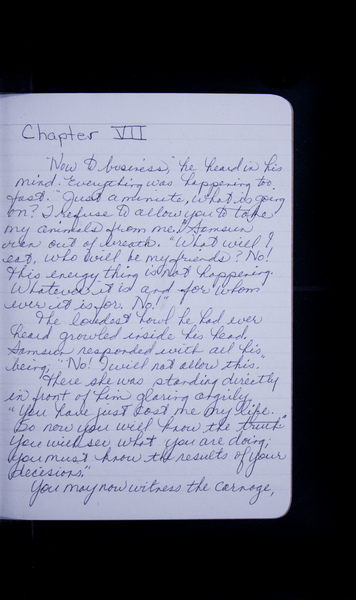 Chapter VII
"Now to business," he heard in his
mind. Everything was happening too
fast. "Just a minute, what is going
on? I refuse to allow you to take
my animals from me." Samsun
even out of breath. "What will I
eat, who will be my friends? No!
This energy thing is not happening.
Whatever it is and for whom
ever it is for. No!"
The loudest howl he had ever
heard growled inside his head.
Samsun responded with all his
being, "No! I will not allow this."
There she was standing directly
in front of him glaring angrily.
"You have just cost me my life.
So now you will know the truth.
You will see what you are doing;
you must know the results of your
decesions."
You may now witness the carnage,